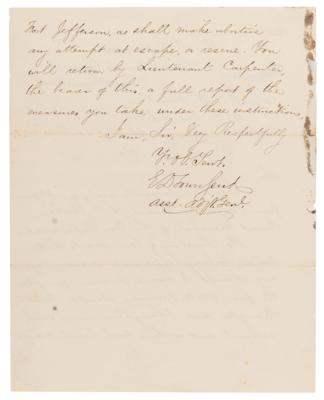 Fort Jefferson, as shall make abortive
any attempt at escape, or rescue. You
will return by Lieutenant Carpenter,
the bearer of this, a full report of the
measures you take under these instructions.
I am, Sir, Very Respectfully
Yr. Obt. Servt.
E D Townsend
Asst. Adjt. Genl.